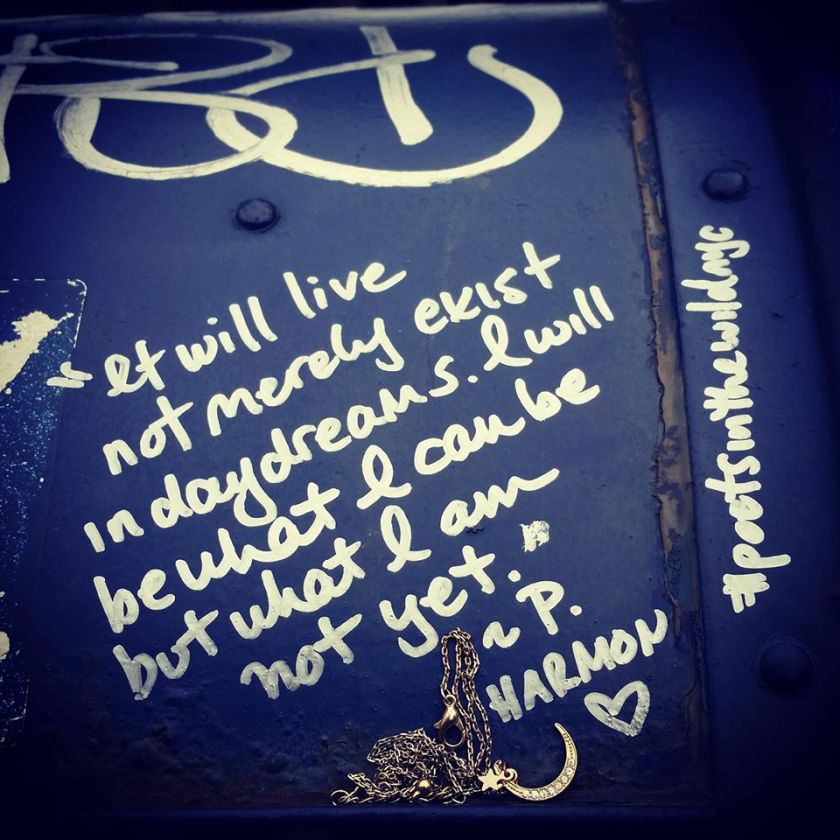 "It will live
not merely exist
in daydreams. I will
be what I can be
but what I am
not yet."
~ P.
HARMON
#poetsinthewildnyc